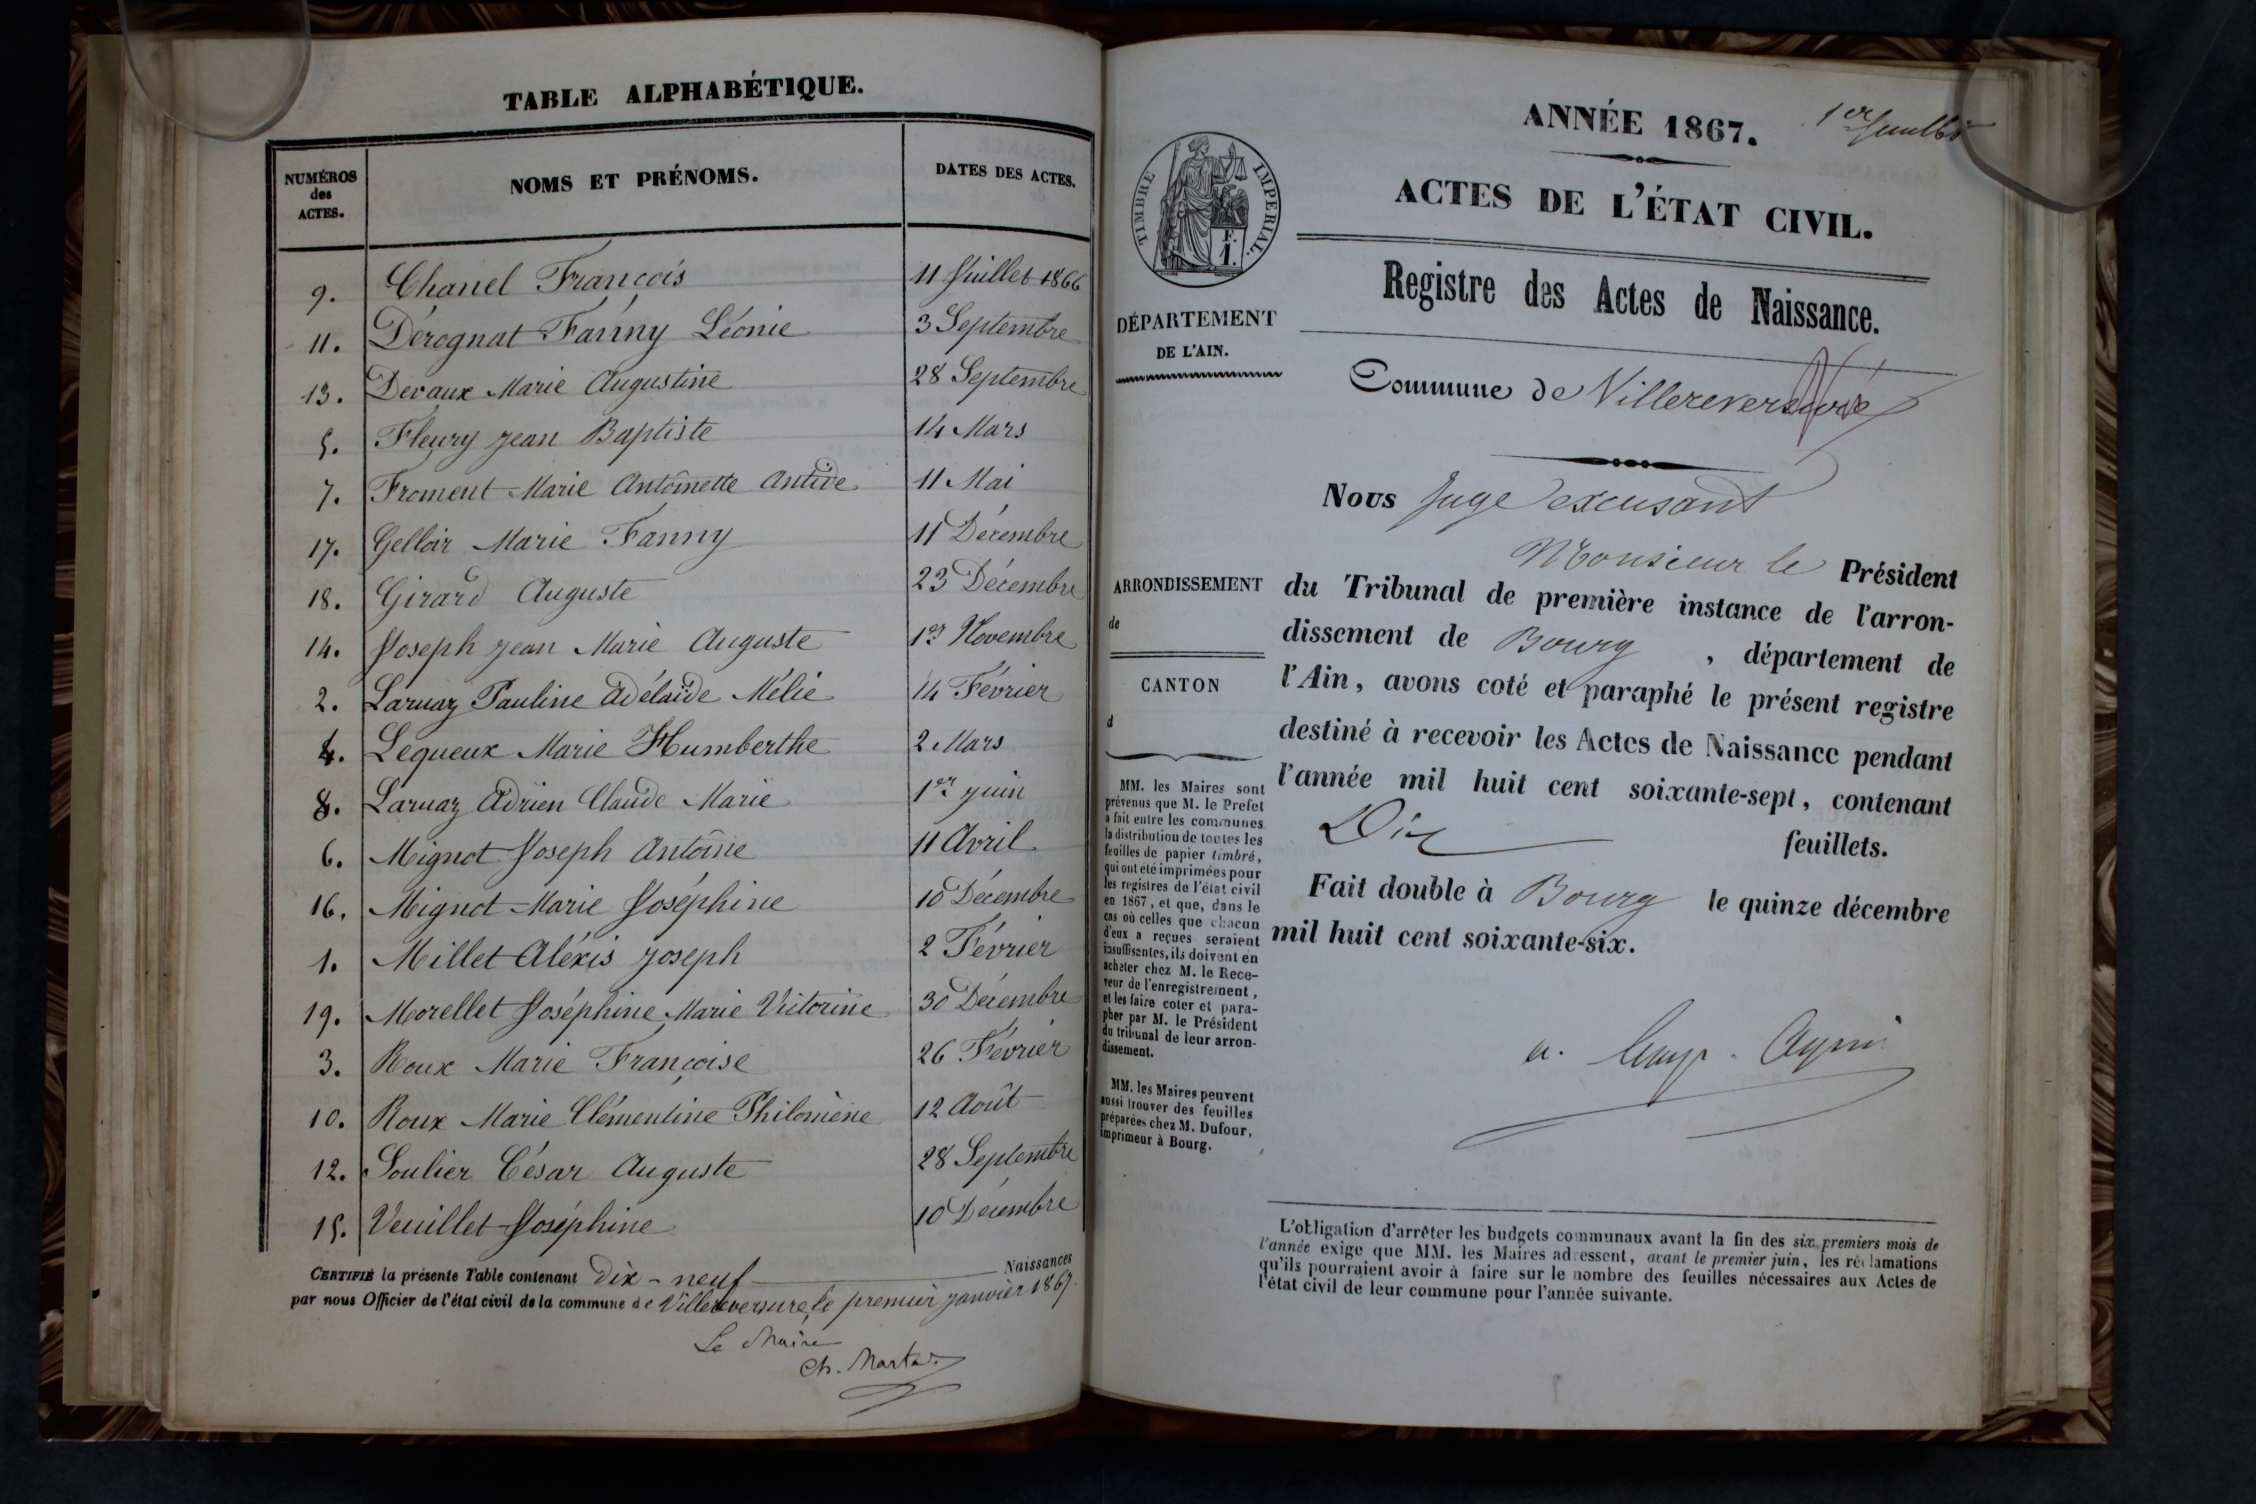 TABLE ALPHABÉTIQUE.
NUMÉROS des ACTES. NOMS ET PRÉNOMS. DATES DES ACTES.
9. Chanel François 11 Juillet 1866
11. Dérognat Fanny Léonie 3 Septembre
13. Devaux Marie Augustine 28 Septembre
5. Fleury Jean Baptiste 14 Mars
7. Froment Marie Antoinette Antide 11 Mai
17. Gelloir Marie Fanny 11 Décembre
18. Girard Auguste 23 Décembre
14. Joseph Jean Marie Auguste 1er Novembre
2. Larnaz Pauline Adélaïde Mélie 14 Février
4. Lequeux Marie Humberthe 2 Mars
8. Larnaz Adrien Claude Marie 1er juin
6. Mignot Joseph Antoine 11 Avril
16. Mignot Marie Joséphine 10 Décembre
1. Millet Aléxis Joseph 2 Février
19. Morellet Joséphine Marie Victorine 30 Décembre
3. Roux Marie Françoise 26 Février
10. Roux Marie Clémentine Philomène 12 Août
12. Soulier César Auguste 28 Septembre
15. Veuillet Joséphine 10 Décembre
CERTIFIÉ la présente Table contenant Dix-neuf Naissances
par nous Officier de l'état civil de la commune de Villereversure, le premier janvier 1867.
Le Maire
Ch.
ANNÉE 1867.
1er feuillet
ACTES DE L'ÉTAT CIVIL.
TIMBRE IMPÉRIAL.
F.
1.
Registre des Actes de Naissance.
DÉPARTEMENT
DE L'AIN.
Commune de Villereversure
Nous Juge excusant
Monsieur le Président
du Tribunal de première instance de l'arron-
dissement de Bourg, département de
l'Ain, avons coté et paraphé le présent registre
destiné à recevoir les Actes de Naissance pendant
l'année mil huit cent soixante-sept, contenant
Dix feuillets.
Fait double à Bourg le quinze décembre
mil huit cent soixante-six.
ARRONDISSEMENT
de
CANTON
d
MM. les Maires sont
prévenus que M. le Préfet
a fait entre les communes
la distribution de toutes les
feuilles de papier timbré,
qui ont été imprimées pour
les registres de l'état civil
en 1867, et que, dans le
cas où celles que chacun
d'eux a reçues seraient
insuffisentes, ils doivent en
acheter chez M. le Rece-
veur de l'enregistrement,
et les faire coter et para-
pher par M. le Président
du tribunal de leur arron-
dissement.
MM. les Maires peuvent
aussi trouver des feuilles
préparées chez M. Dufour,
imprimeur à Bourg.
L'obligation d'arrêter les budgets communaux avant la fin des six premiers mois de
l'année exige que MM. les Maires adressent, avant le premier juin, les réclamations
qu'ils pourraient avoir à faire sur le nombre des feuilles nécessaires aux Actes de
l'état civil de leur commune pour l'année suivante.